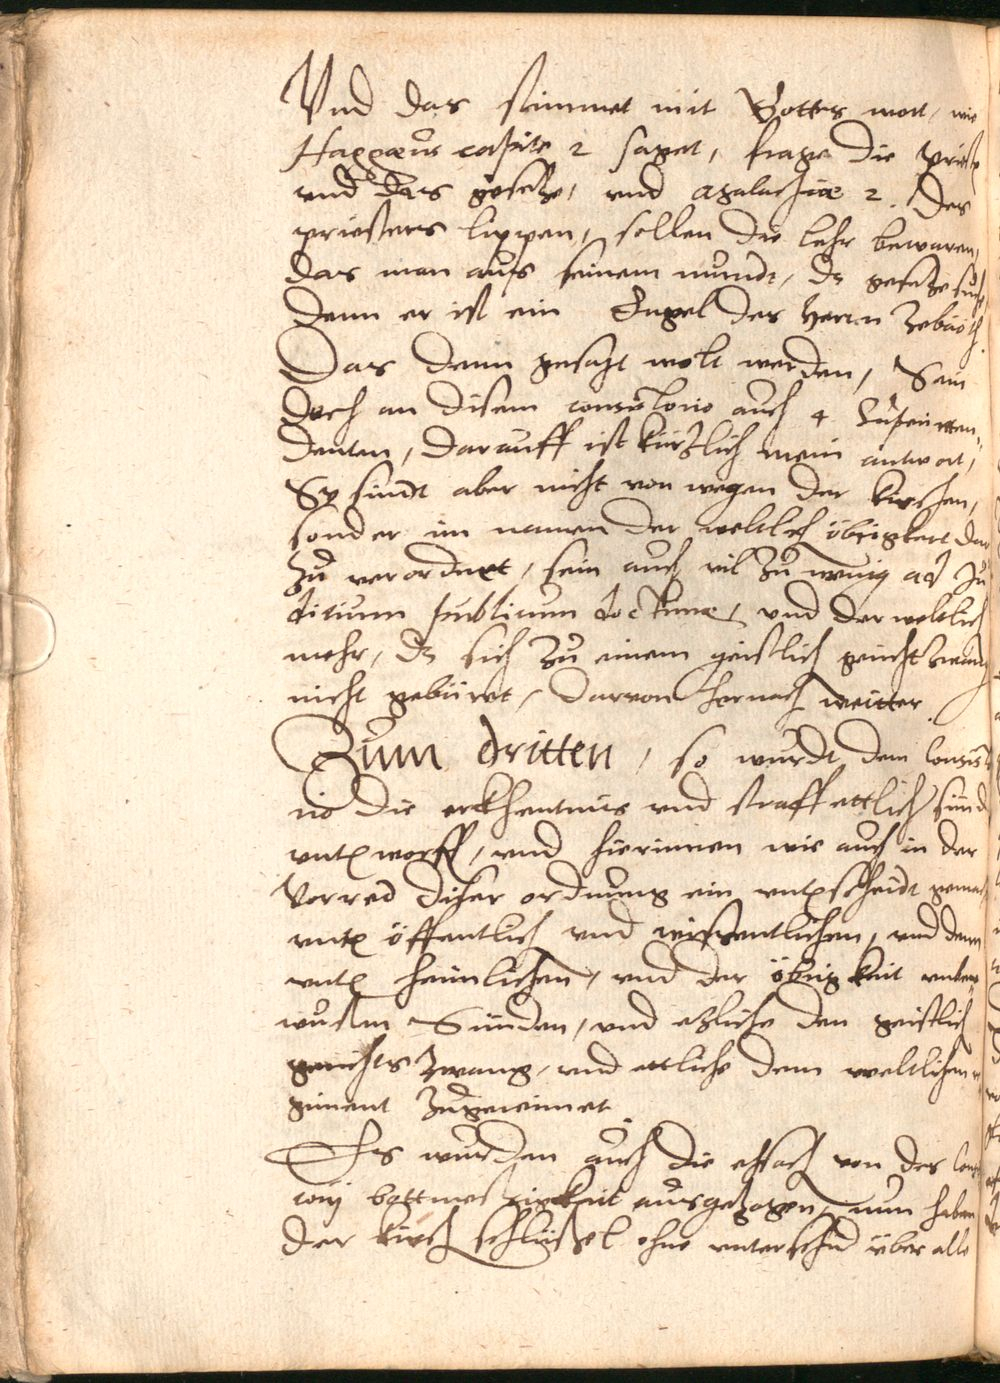 Vnd das stimmet mit Gottes wort, wie
Haggæus capite 2 saget, frage die priest
vnd des gesetze, vnd Malachiæ 2. Des
priesters lippen, sollen die lehr bewaren,
das man aus seinem mundt, dz gesetze such
Denn er ist ein Engel des Herrn Zebaoth.
Das denn gesagt wolt werden, Sein
doch an disem consistorio auch 4 Supeintten-
denten, darauff ist kürtzlich mein antwort,
Sy sindt aber nicht von wegen der kirchen,
sonder im namen der weltlich öbrigkeit dar
zu verordnet, sein auch vil zu wenig ad Ju
ditium publicum doctrinæ, vnd der weltlich
mehr, dz sich zu einem geistlich gericht zwang
nicht gebüret, darvon hernach weitter.
Zum dritten, so wurdt dem Consisto
rio die erkhentnus vnd straff ettlich sünd
vnterworff, vnd hierinnen wie auch in der
Vorred diser ordnung ein vnterscheidt gemac
vnter öffentlich vnd wissentlichen, vnd denn
vnter heimlichen, vnd der öbrigkeit vnbe-
wusten Sünden, vnd etzliche den geistlich
gerichts zwang, vnd ettliche dem weltlichen re
giment zugeeinnet.
Es wurden auch die ehsach von des Cons
rij bottmessigkeit ausgezogen, nun haben
der kirch schlüssel ohne vnterscheid über alle